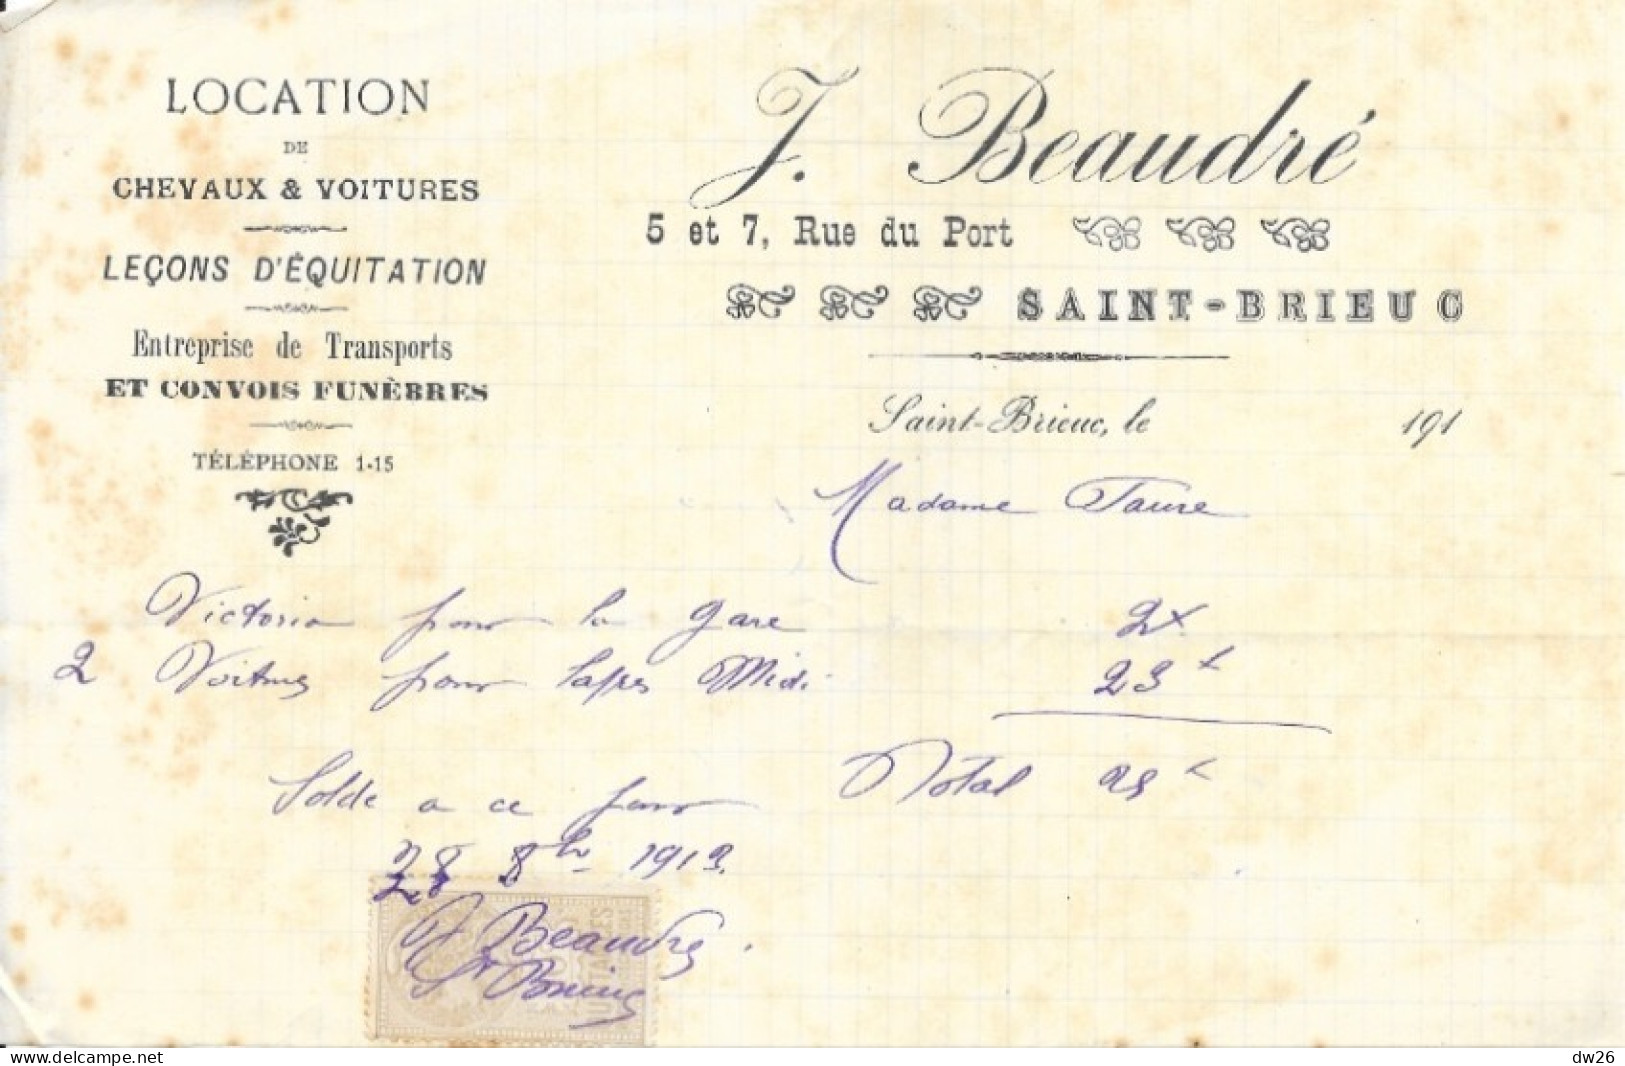 LOCATION
DE
CHEVAUX & VOITURES
LEÇONS D'ÉQUITATION
Entreprise de Transports
ET CONVOIS FUNÈBRES
TÉLÉPHONE 1-15
J. Beaudré
5 et 7, Rue du Port
SAINT-BRIEUC
Saint-Brieuc, le 191
Madame Faure
Victoria pour la gare 2
2 Voitures pour lapres Midi 23
Total 25
Solde a ce jour
28 8bre 1913
J Beaudré
St Brieuc
www.delcampe.net
dw26